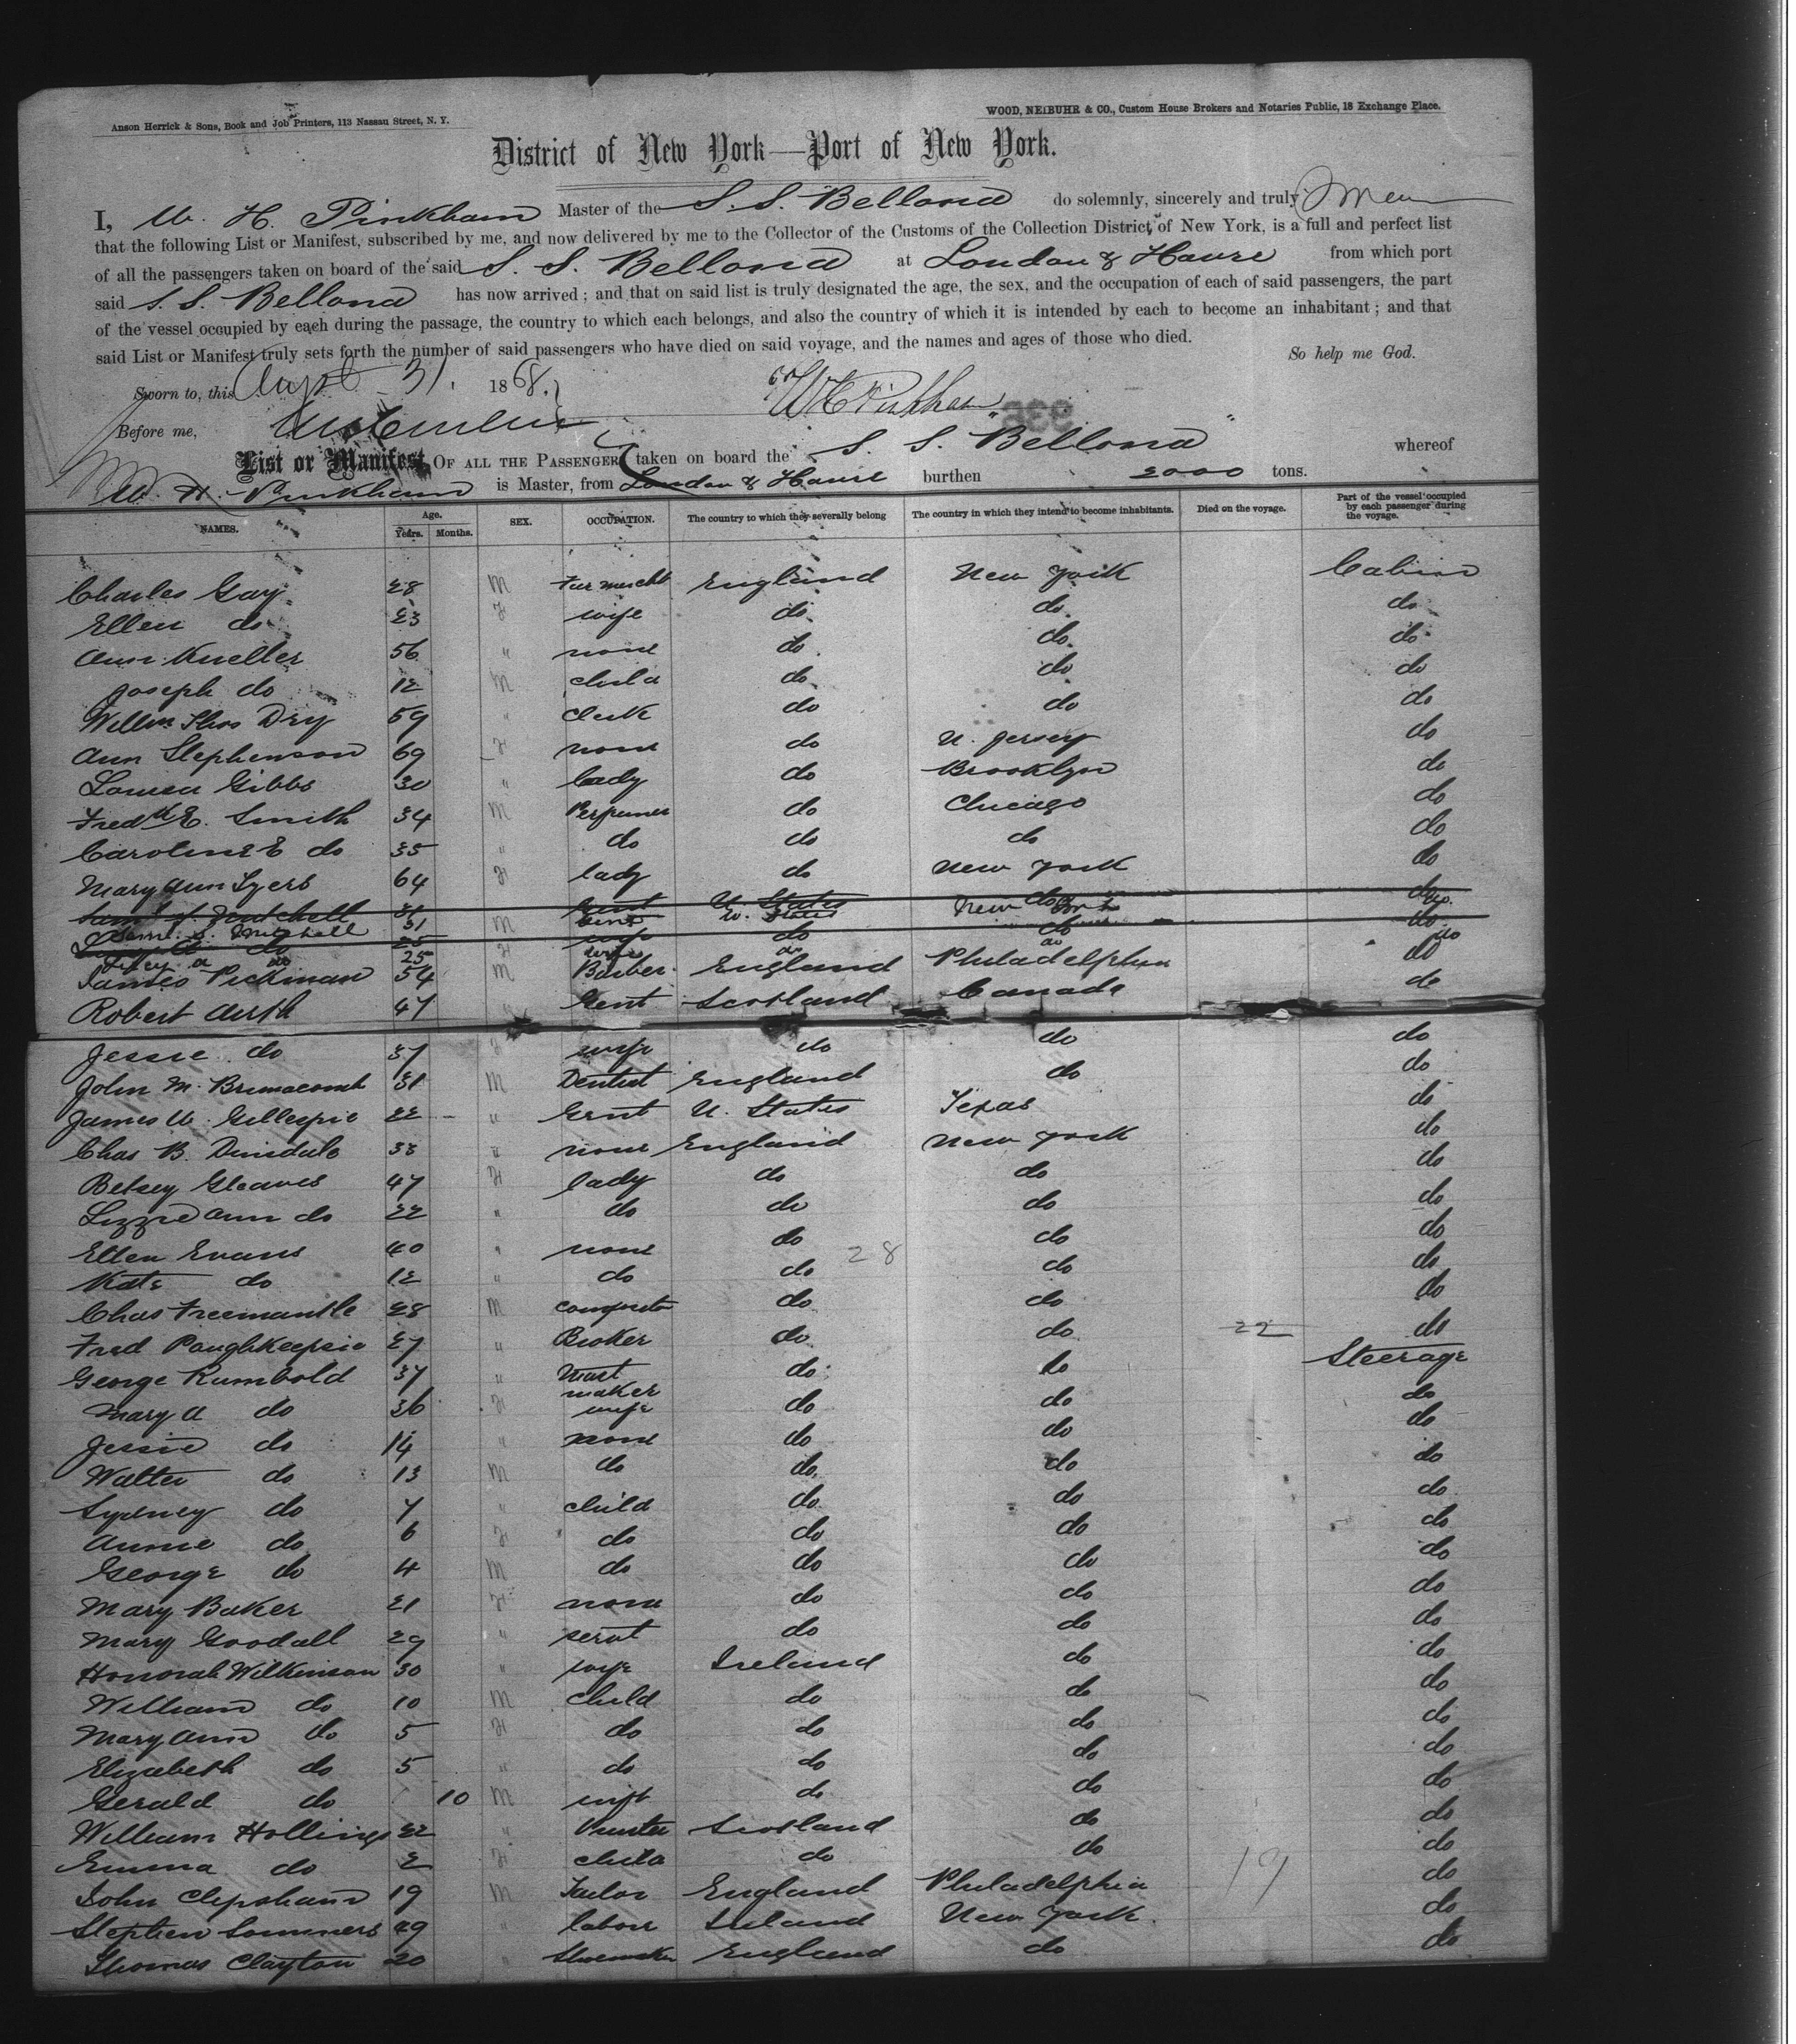 Anson Herrick & Sons, Book and Job Printers, 113 Nassau Street, N. Y.
WOOD, NEIBUHR & CO., Custom House Brokers and Notaries Public, 18 Exchange Place.
District of New York—Port of New York.
I, W. H. Pinkham Master of the S. S. Bellona do solemnly, sincerely and truly
that the following List or Manifest, subscribed by me, and now delivered by me to the Collector of the Customs of the Collection District of New York, is a full and perfect list
of all the passengers taken on board of the said S. S. Bellona at London & Havre from which port
said S. S. Bellona has now arrived; and that on said list is truly designated the age, the sex, and the occupation of each of said passengers, the part
of the vessel occupied by each during the passage, the country to which each belongs, and also the country of which it is intended by each to become an inhabitant; and that
said List or Manifest truly sets forth the number of said passengers who have died on said voyage, and the names and ages of those who died.
So help me God.
Sworn to, this 31, 1868.
W H Pinkham
Before me,
List or Manifest OF ALL THE PASSENGERS taken on board the S. S. Bellona whereof
W. H. Pinkham is Master, from London & Havre burthen 2000 tons.
NAMES. Age. Years. Months. SEX. OCCUPATION. The country to which they severally belong The country in which they intend to become inhabitants. Died on the voyage. Part of the vessel occupied by each passenger during the voyage.
Charles Gay 28 M Fur mercht England New York Cabin
Ellen do 23 F wife do do do
Ann Kueller 56 " none do do do
Joseph do 12 M child do do do
Willm Thos Dry 59 " clerk do do do
Ann Stephenson 69 F none do N. Jersey do
Louisa Gibbs 30 " lady do Brooklyn do
Fredk E. Smith 34 M Perfumer do Chicago do
Caroline E do 35 " do do do do
Mary Ann Syers 64 F lady do New York do
Saml S. Mitchell 31 Gent U. States do do
Saml. S. Mitchell 31 M Gent U. States New York do
do 25 wife do do do
Lucy A do 25 F wife do do do
James Pickman 54 M Barber England Philadelphia do
Robert Airth 47 " Gent Scotland Canada do
Jessie do 37 F wife do do do
John M. Brimacomb 31 M Dentist England do do
James W. Gillespie 22 " Gent U. States Texas do
Chas B. Dinsdale 33 " none England New York do
Betsey Gleaves 47 F lady do do do
Lizzie Ann do 22 " do do do do
Ellen Evans 40 " none do 28 do do
Kate do 12 " do do do do
Chas Freemantle 28 M compositor do do do
Fred Poughkeepsie 27 " Broker do do 22 do
George Rumbold 37 " Mast maker do do Steerage
Mary A do 36 F wife do do do
Jessie do 14 " none do do do
Walter do 13 M do do do do
Sydney do 7 " child do do do
Annie do 6 F do do do do
George do 4 M do do do do
Mary Baker 21 F none do do do
Mary Goodall 29 " servt do do do
Honorah Wilkinson 30 " wife Ireland do do
William do 10 M child do do do
Mary Ann do 5 F do do do do
Elizabeth do 5 " do do do do
Gerald do 10 M inft do do do
William Hollings 22 " Printer Scotland do do
Emma do 2 F child do do do
John Clepsham 19 M Tailor England Philadelphia 19 do
Stephen Sommers 29 " labour Ireland New York. do
Thomas Clayton 20 " Shoemaker England do do